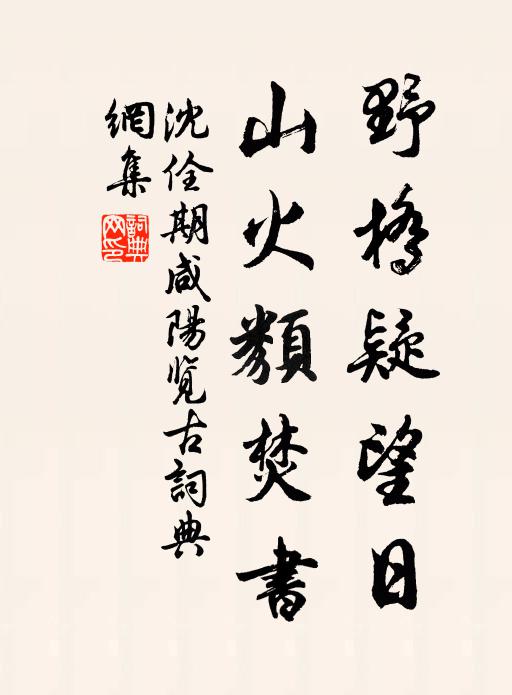 野橋疑望日
山火類焚書
沈佺期咸陽覧古詞典
網集
詞典網印